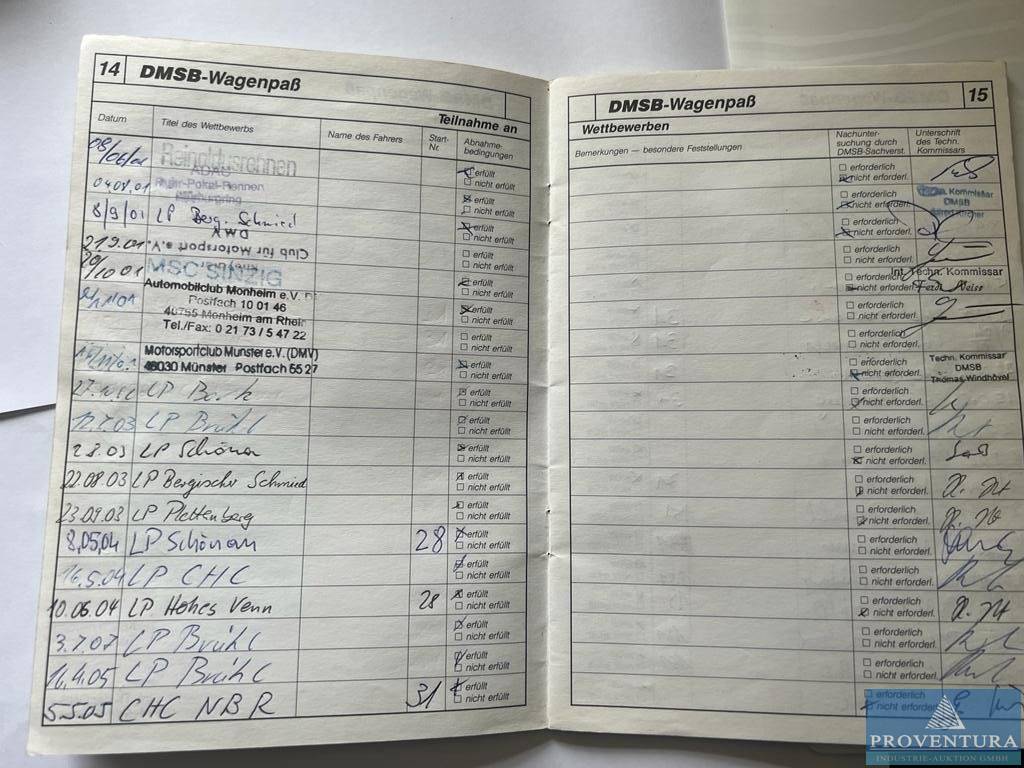 14 DMSB-Wagenpaß
Teilnahme an
Datum Titel des Wettbewerbs Name des Fahrers Start-Nr. Abnahme-bedingungen
08/06/01 Reinoldusrennen erfüllt
nicht erfüllt
ADAC
04.08.01 Ruhr-Pokal-Rennen erfüllt
Nürburgring nicht erfüllt
8/9/01 LP Berg. Schmied erfüllt
DMV nicht erfüllt
Club für Motorsport e.V. erfüllt
nicht erfüllt
10 01 MSC SINZIG erfüllt
nicht erfüllt
Automobilclub Monheim e.V.
Postfach 10 01 46 erfüllt
40755 Monheim am Rhein nicht erfüllt
Tel./Fax: 0 21 73 / 5 47 22 erfüllt
nicht erfüllt
Motorsportclub Münster e.V. (DMV) erfüllt
48030 Münster Postfach 55 27 nicht erfüllt
LP erfüllt
nicht erfüllt
LP Brühl erfüllt
nicht erfüllt
2.8.03 LP Schönau erfüllt
nicht erfüllt
22.08.03 LP Bergischer Schmied erfüllt
nicht erfüllt
23.09.03 LP Plettenberg erfüllt
nicht erfüllt
8.05.04 LP Schönau 28 erfüllt
nicht erfüllt
16.5.04 LP CHC erfüllt
nicht erfüllt
10.06.04 LP Hohes Venn 28 erfüllt
nicht erfüllt
LP Brühl erfüllt
nicht erfüllt
16.4.05 LP Brühl erfüllt
nicht erfüllt
5.5.05 CHC NBR 31 erfüllt
nicht erfüllt
DMSB-Wagenpaß 15
Wettbewerben
Bemerkungen — besondere Feststellungen Nachunter-suchung durch DMSB-Sachverst. Unterschrift des Techn. Kommissars
erforderlich
nicht erforderl.
erforderlich Kommissar
nicht erforderl. DMSB
erforderlich
nicht erforderl.
erforderlich
nicht erforderl.
erforderlich Int. Techn. Kommissar
nicht erforderl. Ferdi Weiss
erforderlich
nicht erforderl.
erforderlich
nicht erforderl.
erforderlich Techn. Kommissar
nicht erforderl. DMSB
Thomas Windhövel
erforderlich
nicht erforderl.
erforderlich
nicht erforderl.
erforderlich
nicht erforderl.
erforderlich
nicht erforderl.
erforderlich
nicht erforderl.
erforderlich
nicht erforderl.
erforderlich
nicht erforderl.
erforderlich
nicht erforderl.
erforderlich
nicht erforderl.
erforderlich
nicht erforderl.
erforderlich
nicht erforderl.
PROVENTURA
INDUSTRIE-AUKTION GMBH